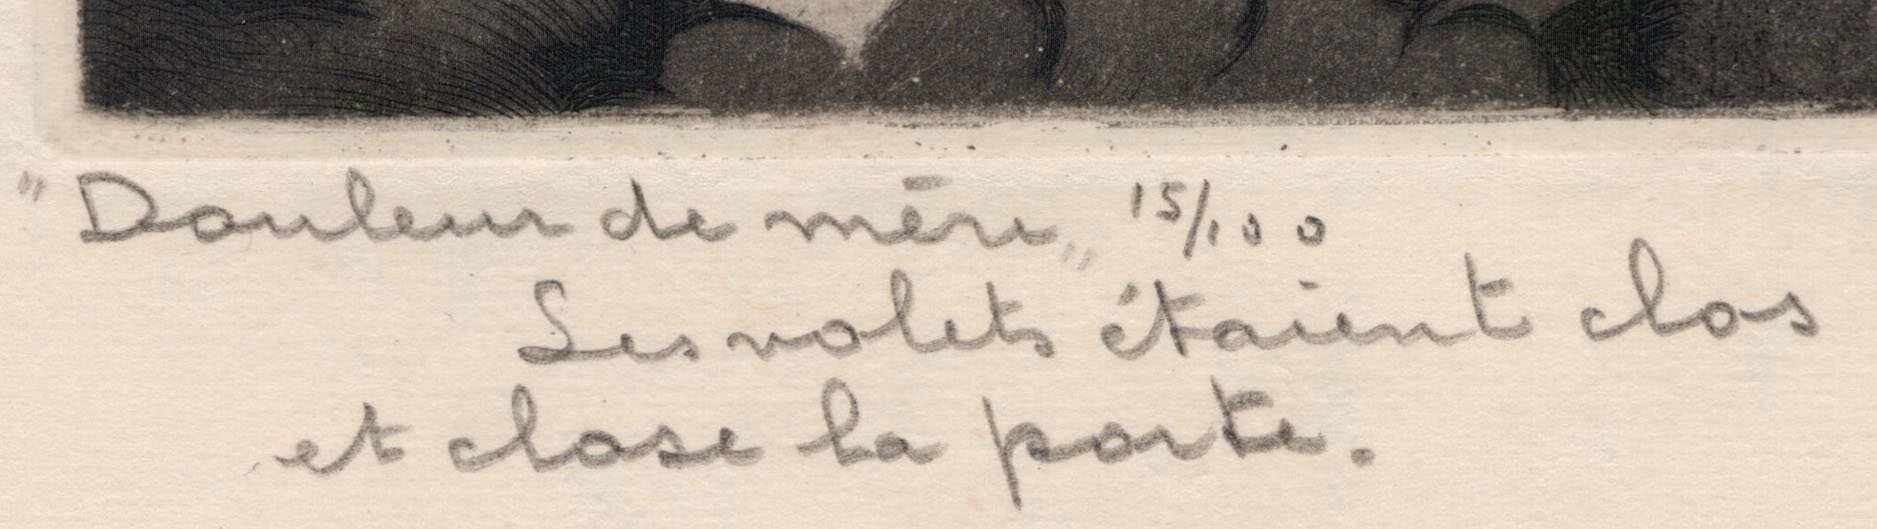 "Douleur de mère„ 15/100
Les volets étaient clos
et close la porte.